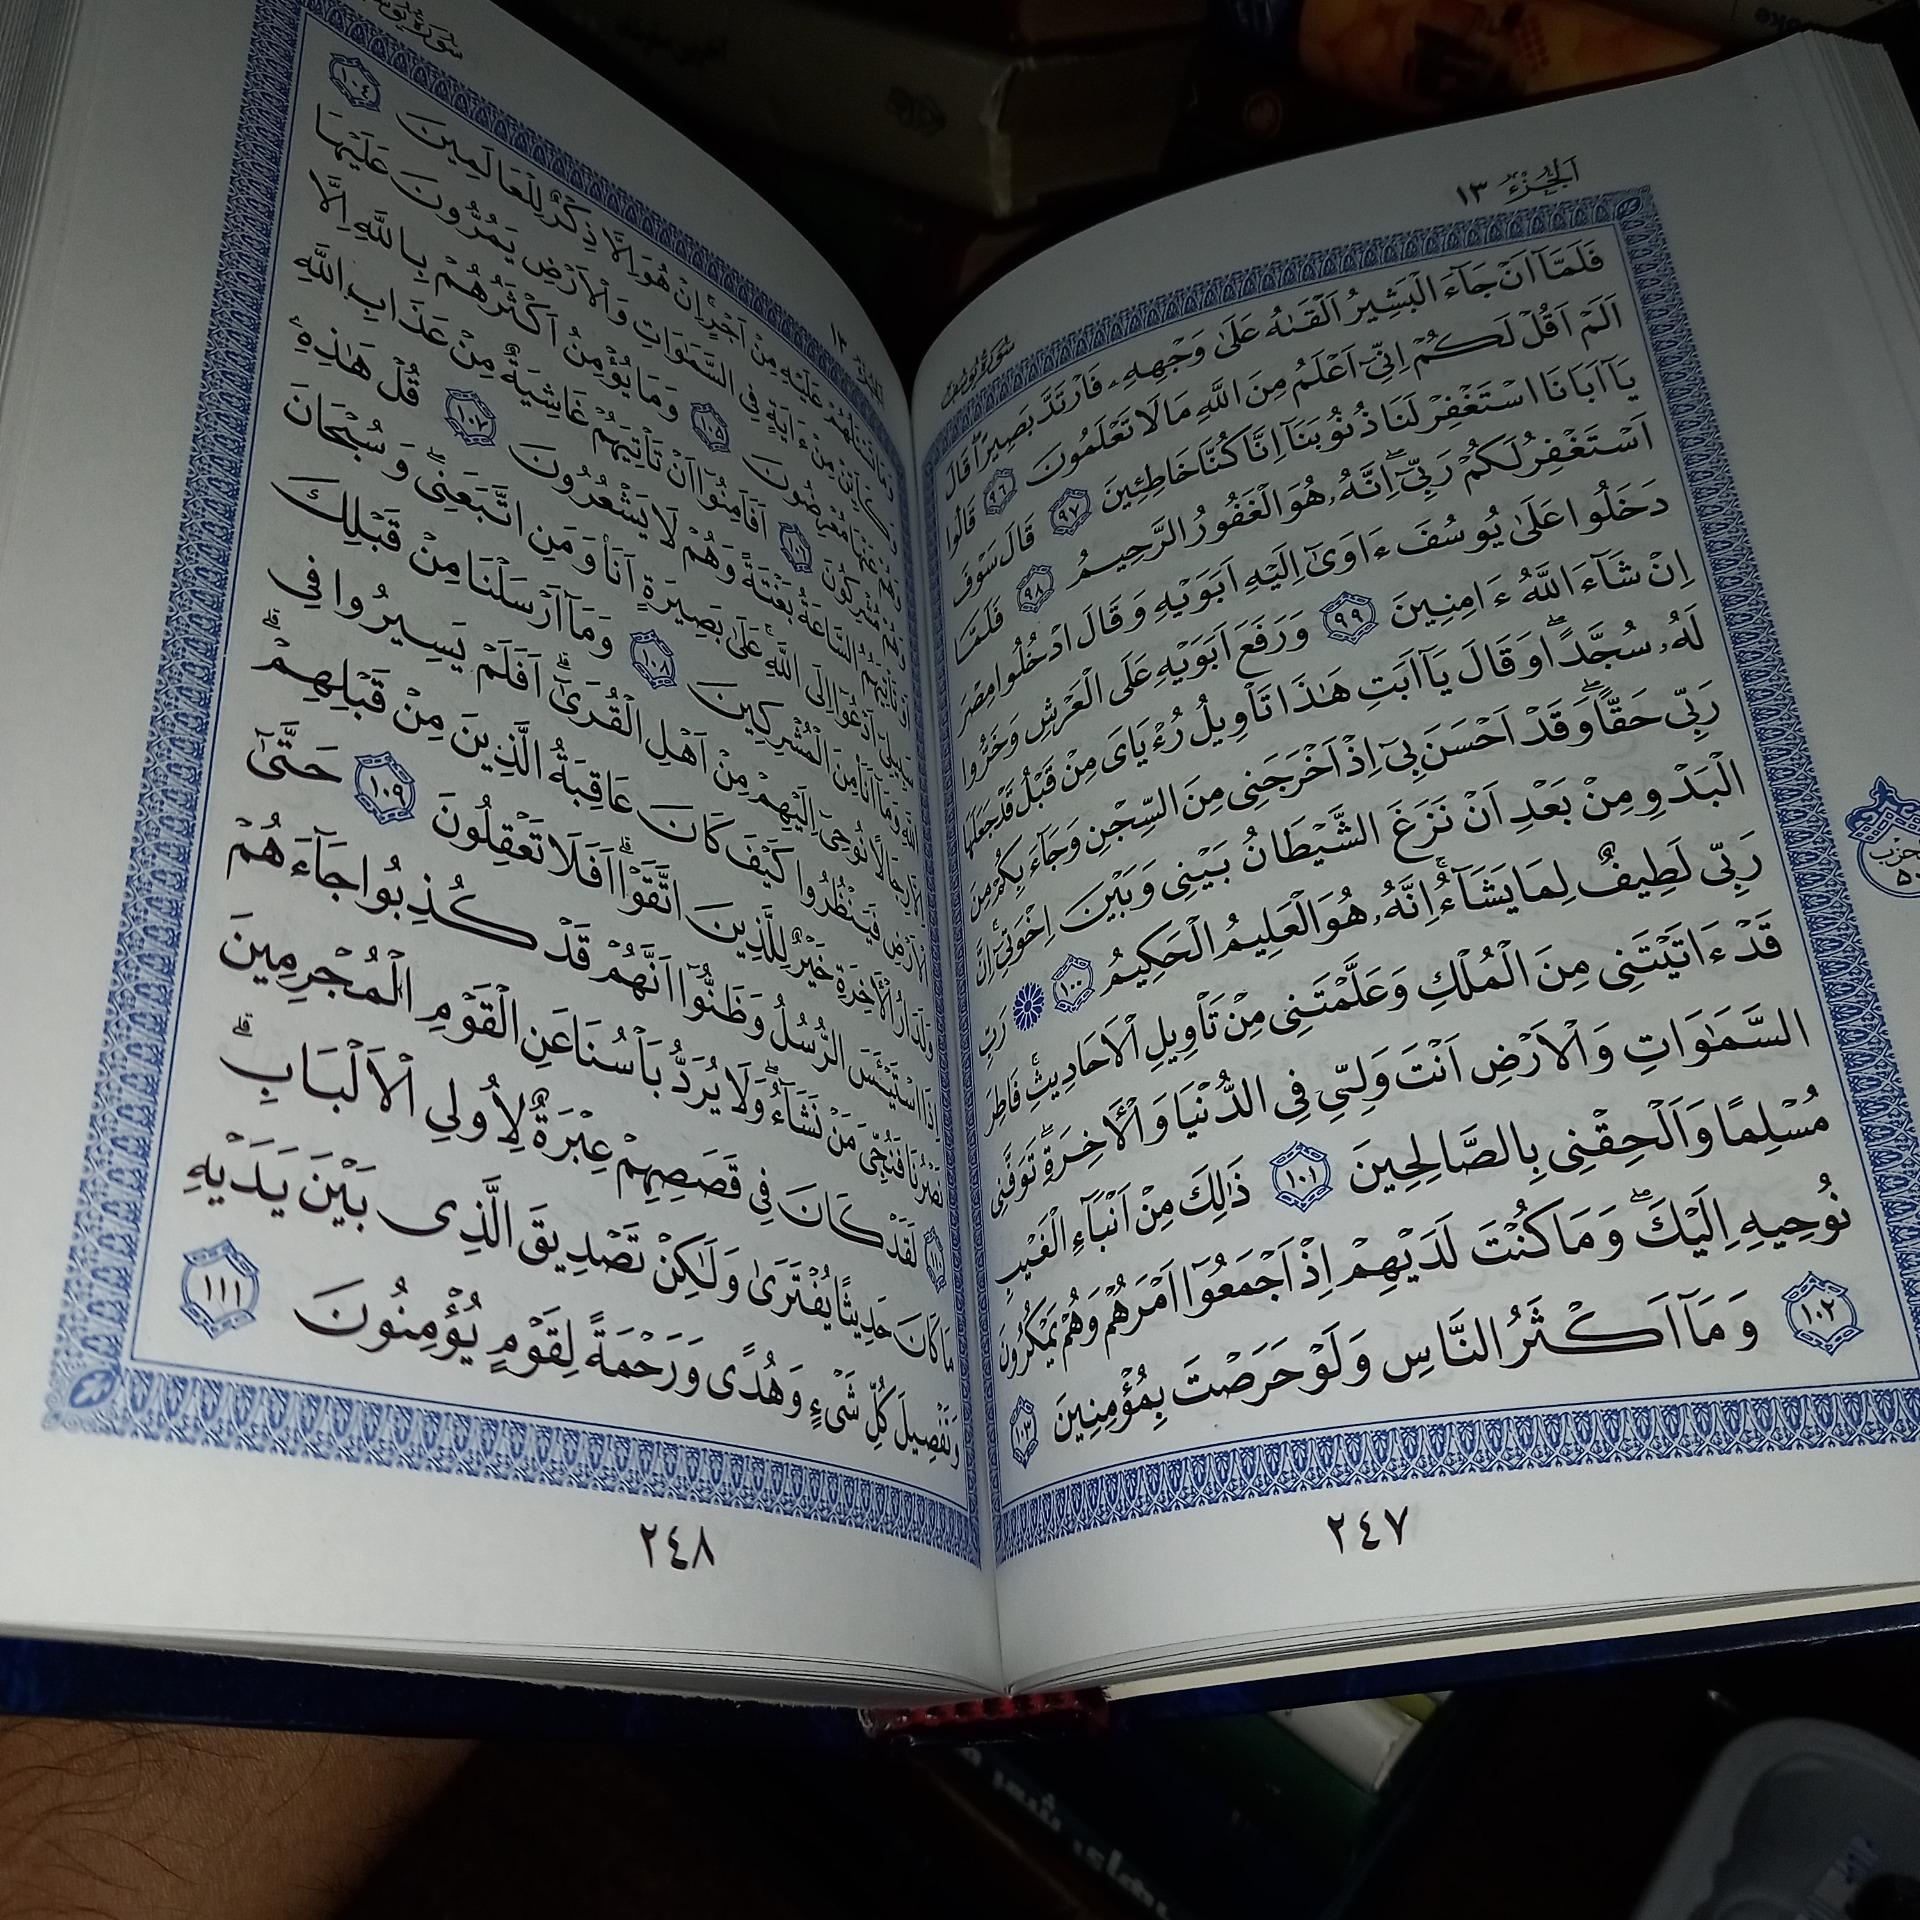 الجزء ١٣
سورة يوسف
فَلَمَّآ اَنْ جَآءَ الْبَشِيرُ اَلْقٰىهُ عَلٰى وَجْهِهِۦ فَارْتَدَّ بَصِيرًاۖ قَالَ
اَلَمْ اَقُلْ لَكُمْ اِنِّىٓ اَعْلَمُ مِنَ اللّٰهِ مَا لَا تَعْلَمُونَ ٩٦ قَالُوا
يَآ اَبَانَا اسْتَغْفِرْ لَنَا ذُنُوبَنَآ اِنَّا كُنَّا خَاطِـِٔينَ ٩٧ قَالَ سَوْفَ
اَسْتَغْفِرُ لَكُمْ رَبِّىٓۖ اِنَّهُۥ هُوَ الْغَفُورُ الرَّحِيمُ ٩٨ فَلَمَّا
دَخَلُوا عَلٰى يُوسُفَ ءَاوٰىٓ اِلَيْهِ اَبَوَيْهِ وَقَالَ ادْخُلُوا مِصْرَ
اِنْ شَآءَ اللّٰهُ ءَامِنِينَ ٩٩ وَرَفَعَ اَبَوَيْهِ عَلَى الْعَرْشِ وَخَرُّوا
لَهُۥ سُجَّدًاۖ وَقَالَ يَآ اَبَتِ هٰذَا تَأْوِيلُ رُءْيَاىَ مِنْ قَبْلُ قَدْ جَعَلَهَا
رَبِّى حَقًّاۖ وَقَدْ اَحْسَنَ بِىٓ اِذْ اَخْرَجَنِى مِنَ السِّجْنِ وَجَآءَ بِكُمْ مِنَ
الْبَدْوِ مِنْ بَعْدِ اَنْ نَزَغَ الشَّيْطَانُ بَيْنِى وَبَيْنَ اِخْوَتِىٓۚ اِنَّ
رَبِّى لَطِيفٌ لِمَا يَشَآءُۚ اِنَّهُۥ هُوَ الْعَلِيمُ الْحَكِيمُ ١٠٠ رَبِّ
قَدْ ءَاتَيْتَنِى مِنَ الْمُلْكِ وَعَلَّمْتَنِى مِنْ تَأْوِيلِ الْاَحَادِيثِۚ فَاطِرَ
السَّمٰوَاتِ وَالْاَرْضِ اَنْتَ وَلِيِّى فِى الدُّنْيَا وَالْاٰخِرَةِۖ تَوَفَّنِى
مُسْلِمًا وَاَلْحِقْنِى بِالصَّالِحِينَ ١٠١ ذٰلِكَ مِنْ اَنْبَآءِ الْغَيْبِ
نُوحِيهِ اِلَيْكَۖ وَمَا كُنْتَ لَدَيْهِمْ اِذْ اَجْمَعُوٓا اَمْرَهُمْ وَهُمْ يَمْكُرُونَ
١٠٢ وَمَآ اَكْثَرُ النَّاسِ وَلَوْ حَرَصْتَ بِمُؤْمِنِينَ ١٠٣
٢٤٧
الحزب
سورة يوسف
الجزء ١٣
وَمَا تَسْـَٔلُهُمْ عَلَيْهِ مِنْ اَجْرٍۚ اِنْ هُوَ اِلَّا ذِكْرٌ لِلْعَالَمِينَ ١٠٤
وَكَاَيِّنْ مِنْ ءَايَةٍ فِى السَّمٰوَاتِ وَالْاَرْضِ يَمُرُّونَ عَلَيْهَا
وَهُمْ عَنْهَا مُعْرِضُونَ ١٠٥ وَمَا يُؤْمِنُ اَكْثَرُهُمْ بِاللّٰهِ اِلَّا
وَهُمْ مُشْرِكُونَ ١٠٦ اَفَاَمِنُوٓا اَنْ تَأْتِيَهُمْ غَاشِيَةٌ مِنْ عَذَابِ اللّٰهِ
اَوْ تَأْتِيَهُمُ السَّاعَةُ بَغْتَةً وَهُمْ لَا يَشْعُرُونَ ١٠٧ قُلْ هٰذِهِۦ
سَبِيلِىٓ اَدْعُوٓا اِلَى اللّٰهِۚ عَلٰى بَصِيرَةٍ اَنَا۠ وَمَنِ اتَّبَعَنِىۖ وَسُبْحَانَ
اللّٰهِ وَمَآ اَنَا۠ مِنَ الْمُشْرِكِينَ ١٠٨ وَمَآ اَرْسَلْنَا مِنْ قَبْلِكَ
اِلَّا رِجَالًا نُوحِىٓ اِلَيْهِمْ مِنْ اَهْلِ الْقُرٰىٓۗ اَفَلَمْ يَسِيرُوا فِى
الْاَرْضِ فَيَنْظُرُوا كَيْفَ كَانَ عَاقِبَةُ الَّذِينَ مِنْ قَبْلِهِمْۗ
وَلَدَارُ الْاٰخِرَةِ خَيْرٌ لِلَّذِينَ اتَّقَوْاۗ اَفَلَا تَعْقِلُونَ ١٠٩ حَتّٰىٓ
اِذَا اسْتَيْـَٔسَ الرُّسُلُ وَظَنُّوٓا اَنَّهُمْ قَدْ كُذِبُوا جَآءَهُمْ
نَصْرُنَا فَنُجِّىَ مَنْ نَشَآءُۖ وَلَا يُرَدُّ بَأْسُنَا عَنِ الْقَوْمِ الْمُجْرِمِينَ
١١٠ لَقَدْ كَانَ فِى قَصَصِهِمْ عِبْرَةٌ لِاُولِى الْاَلْبَابِۗ
مَا كَانَ حَدِيثًا يُفْتَرٰى وَلٰكِنْ تَصْدِيقَ الَّذِى بَيْنَ يَدَيْهِ
وَتَفْصِيلَ كُلِّ شَىْءٍ وَهُدًى وَرَحْمَةً لِقَوْمٍ يُؤْمِنُونَ ١١١
٢٤٨